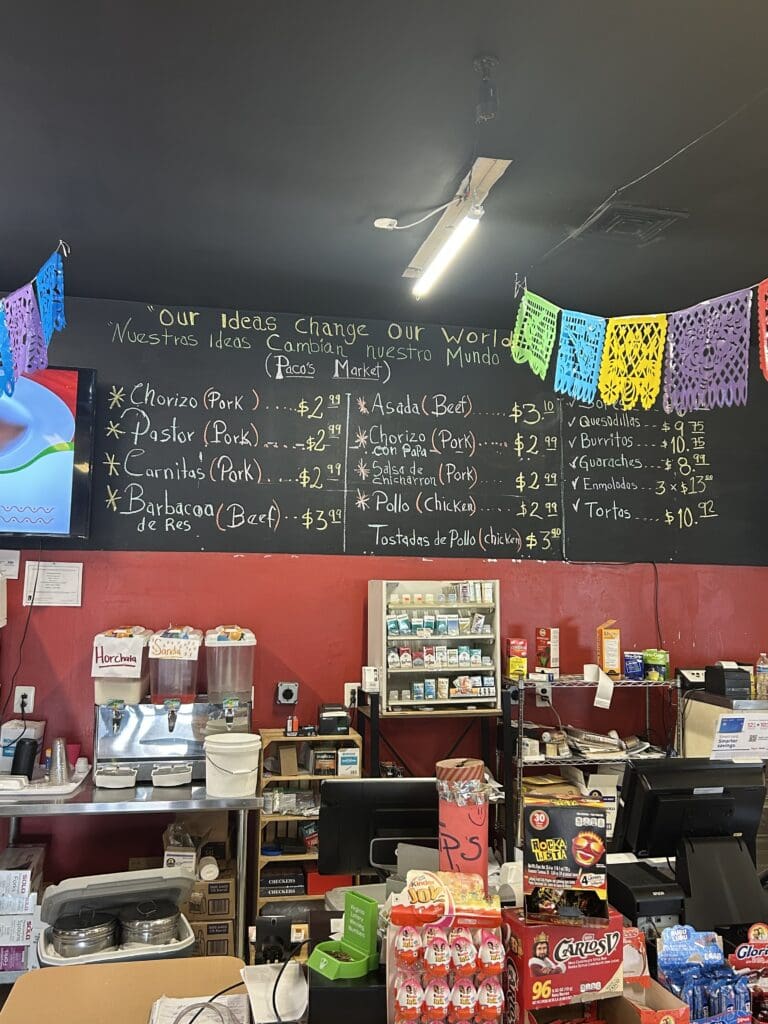 "Our Ideas Change Our World
"Nuestras Ideas Cambian nuestro Mundo
(Paco's Market)
* Chorizo (Pork) .... $2.99
* Pastor (Pork) .. $2.99
* Carnitas (Pork) .. $2.99
* Barbacoa (Beef) .. $3.99
de Res
* Asada (Beef) ..... $3.10
* Chorizo (Pork) ... $2.99
con Papa
* Salsa de (Pork) ... $2.99
chicharron
* Pollo (Chicken) .... $2.99
Tostadas de Pollo (chicken) $3.90
✓ Quesadillas - $9.75
✓ Burritos - $10.75
✓ Guaraches .. $8.99
✓ Enmoladas 3 x $13
✓ Tortas .... $10.92
Horchata
Sandia
CHECKERS
CHECKERS
SOLO
SOLO
P's
Kinder
JOY
30
ROCKA
LETA
4
CARLOS V
96
Gloria